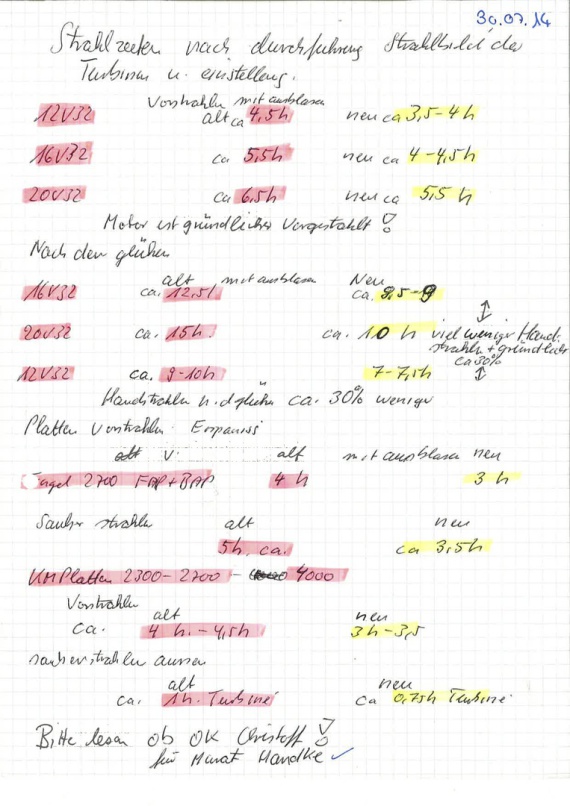 30.07.14
Strahlzeiten nach durchführung Strahlbild der
Turbinen u. einstellung.
Vorstrahlen mit ausblasen
12V32 alt ca 4,5h neu ca 3,5-4h
16V32 ca 5,5h neu ca 4-4,5h
20V32 ca 6,5h neu ca 5,5h
Motor ist gründlicher Vorgestrahlt!
Nach dem glühen
alt mit ausblasen Neu
16V32 ca. 12,5h ca. 8,5-9
20V32 ca. 15h. ca. 10 h viel weniger Hand.
strahlen + gründlicher
ca 30%
12V32 ca. 9-10h 7-7,5h
Handstrahlen n.d glühen ca. 30% weniger
Platten Vorstrahlen
V. alt mit ausblasen neu
2700 FAP+BAP 4 h 3 h
Sauber strahlen alt neu
5h. ca. ca 3,5h
KM Platten 2300-2700 - 4000
Vorstrahlen
alt neu
ca. 4 h.-4,5h 3h-3,5
sauberstrahlen aussen
alt neu
ca. 1h. Turbine ca 0,75h Turbine
Bitte lesen ob OK Christoff!
für Murat Handke ✓